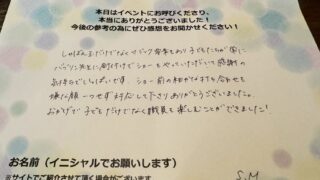 本日はイベントにお呼びくださり、
本当にありがとうございました!
今後の参考の為にぜひ感想をお聞かせください!
しゃぼん玉だけでなくマジック 音楽もあり 子どもたちが
バブリン先生に釘付けでショーもやっていただいて感謝の
気持ちでいっぱいです。ショー前の細かな打ち合わせも
嫌な顔一つせず対応して下さりありがとうございました。
おかげで子どもだけでなく職員も楽しむことができました!
お名前(イニシャルでお願いします)
※サイトでご紹介させて頂く場合がございます。
S.M